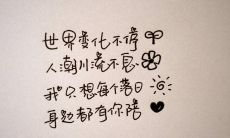 世界变化不停
人潮川流不息
我只想每个落日
身边都有你陪